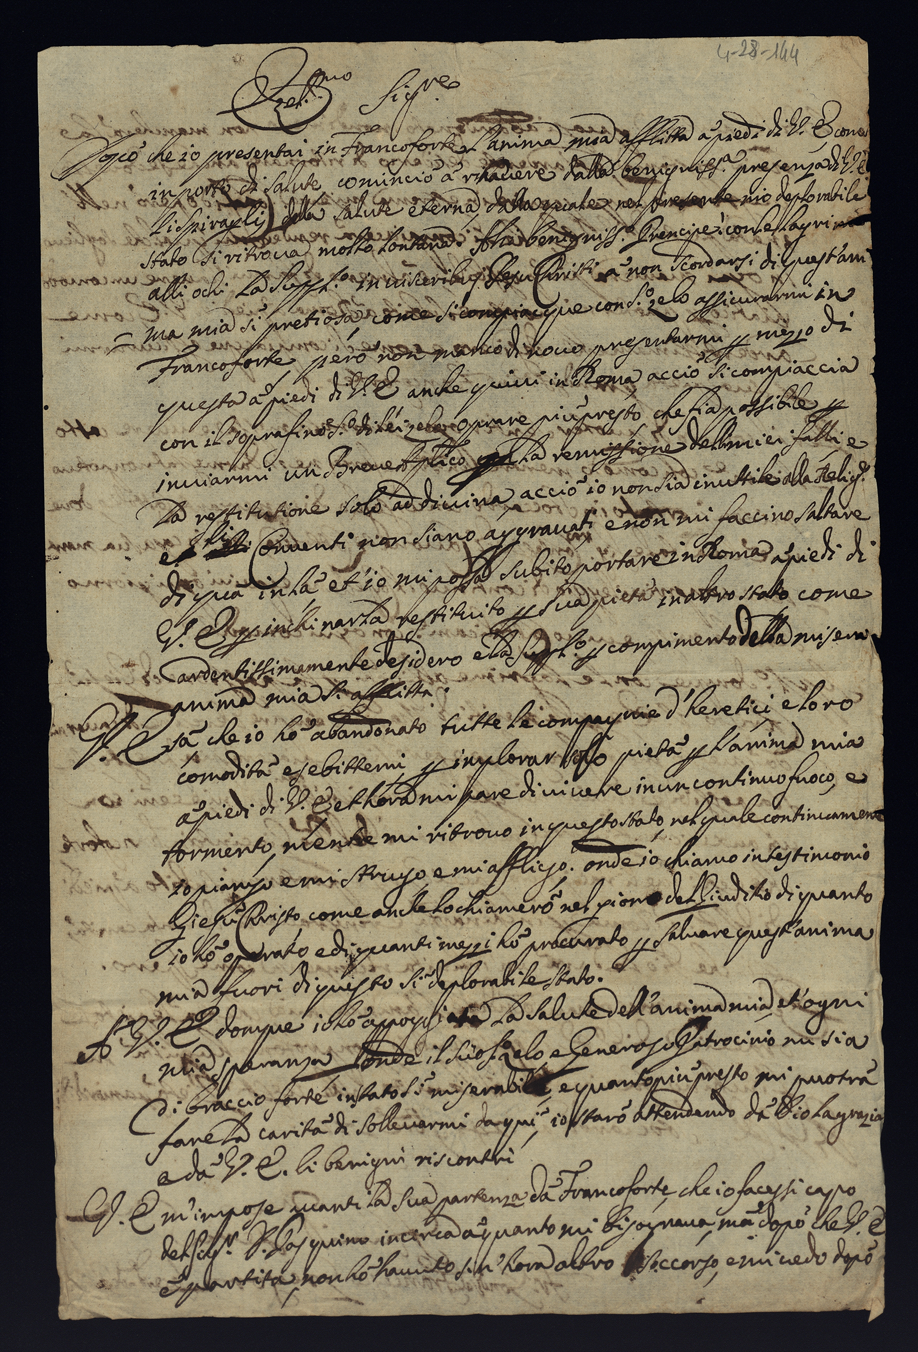 4-28-144
Ecell.mo Sig.re
Dopò che io presentai in Francoforte l'anima mia afflitta à piedi di V. E come
in porto di salute cominciò à rihavere dalla benigniss.a presenza di V. E
li spiragli della salute eterna dalla quale nel presente mio deplorabile
stato si ritrova molto lontana. Altro benigniss.o Prencipe con le lagrime
alli ochi la supp.co in visceribus Jesu Christi à non scordarsi di quest'ani
= ma mia si pretiosa come si compiacque con s.o zelo assicurarmi in
Francoforte, però non manco di novo presentarmi p mezzo di
questa à piedi di V. E anche quivi in Roma acciò si compiaccia
con il soprafino s.o di lei zelo oprare più presto, che sia possibile p
inviarmi un Breve Ap.lico p la remissione delli miei falli, e
la restitutione solo ad divina, acciò io non sia inutile alla Relig.e
e li Conventi non siano aggravati e non mi faccino saltare
di qua in là et io mi possa subito portare in Roma à piedi di
V. E p inchinarla restituito p sua pietà in altro stato come
ardentissimamente desidero e la supp.co p compimento della misera
anima mia si afflitta.
V. E sà che io hò abandonato tutte le compagnie d'heretici, e loro
comodità esebittemi, p implorar solo pietà p l'anima mia
à piedi di V. E et hora mi pare di vivere in un continuo fuoco, e
tormento, mentre mi ritrovo in questo stato, nel quale continuamente
io piango e mi struggo e mi affliggo. onde io chiamo in testimonio
Giesù Christo, come anche lo chiamerò nel giorno del Giuditio di quanto
io hò operato e di quanti mezzi hò procurato p salvare quest'anima
mia fuori di questo si deplorabile stato.
A V. E donque io hò appoggiata la salute dell'anima mia et ogni
mia speranza onde il suo s.o zelo e Generoso Patrocinio mi sia
di braccio forte in stato si miserabile, e quanto più presto mi puotrà
fare la carità di sollevarmi da qui, io starò attendendo da Dio la grazia
e da V. E. li benigni riscontri
V. E m'impose avanti la sua partenza da Francoforte, che io facessi capo
del Sig.r D. Pasquino in circa à quanto mi bisognava, mà dopò che V. E
è partita, non hò havuto sin'hora altro soccorso, e mi vedo dopò